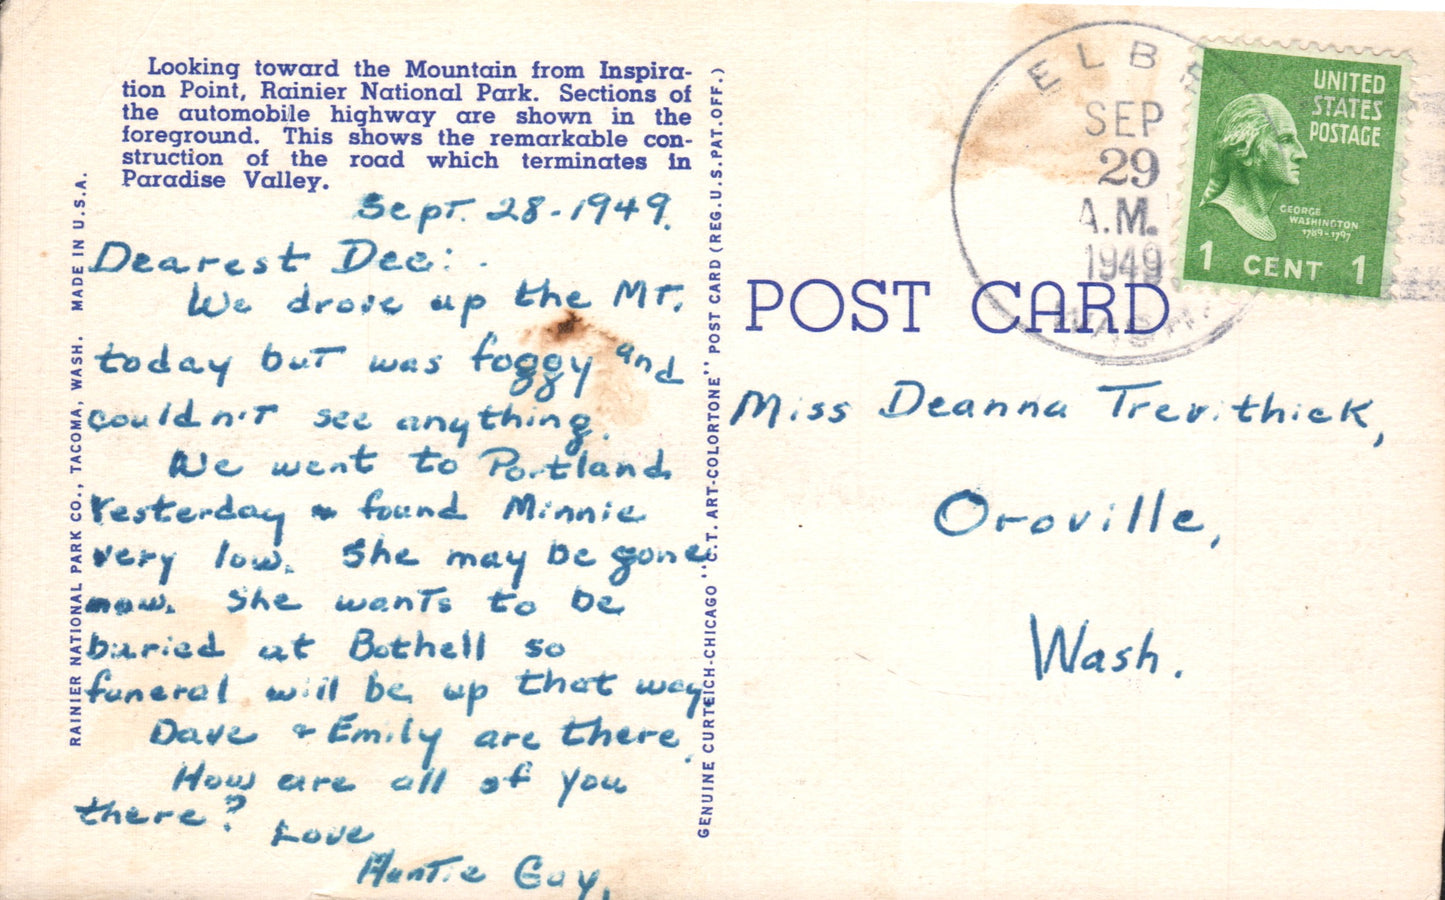 Looking toward the Mountain from Inspira-
tion Point, Rainier National Park. Sections of
the automobile highway are shown in the
foreground. This shows the remarkable con-
struction of the road which terminates in
Paradise Valley.
Sept. 28-1949.
Dearest Dee:
We drove up the Mt.
today but was foggy and
couldn't see anything.
We went to Portland
Yesterday & found Minnie
very low. She may be gone
now. She wants to be
buried at Bothell so
funeral will be up that way.
Dave & Emily are there.
How are all of you
there?
Love
Auntie Gay.
RAINIER NATIONAL PARK CO., TACOMA, WASH. MADE IN U.S.A.
GENUINE CURTEICH-CHICAGO "C.T. ART-COLORTONE" POST CARD (REG. U.S. PAT. OFF.)
POST CARD
ELBE
SEP
29
A.M.
1949
WASH.
UNITED
STATES
POSTAGE
GEORGE
WASHINGTON
1789-1797
1 CENT 1
Miss Deanna Trevithick,
Oroville,
Wash.